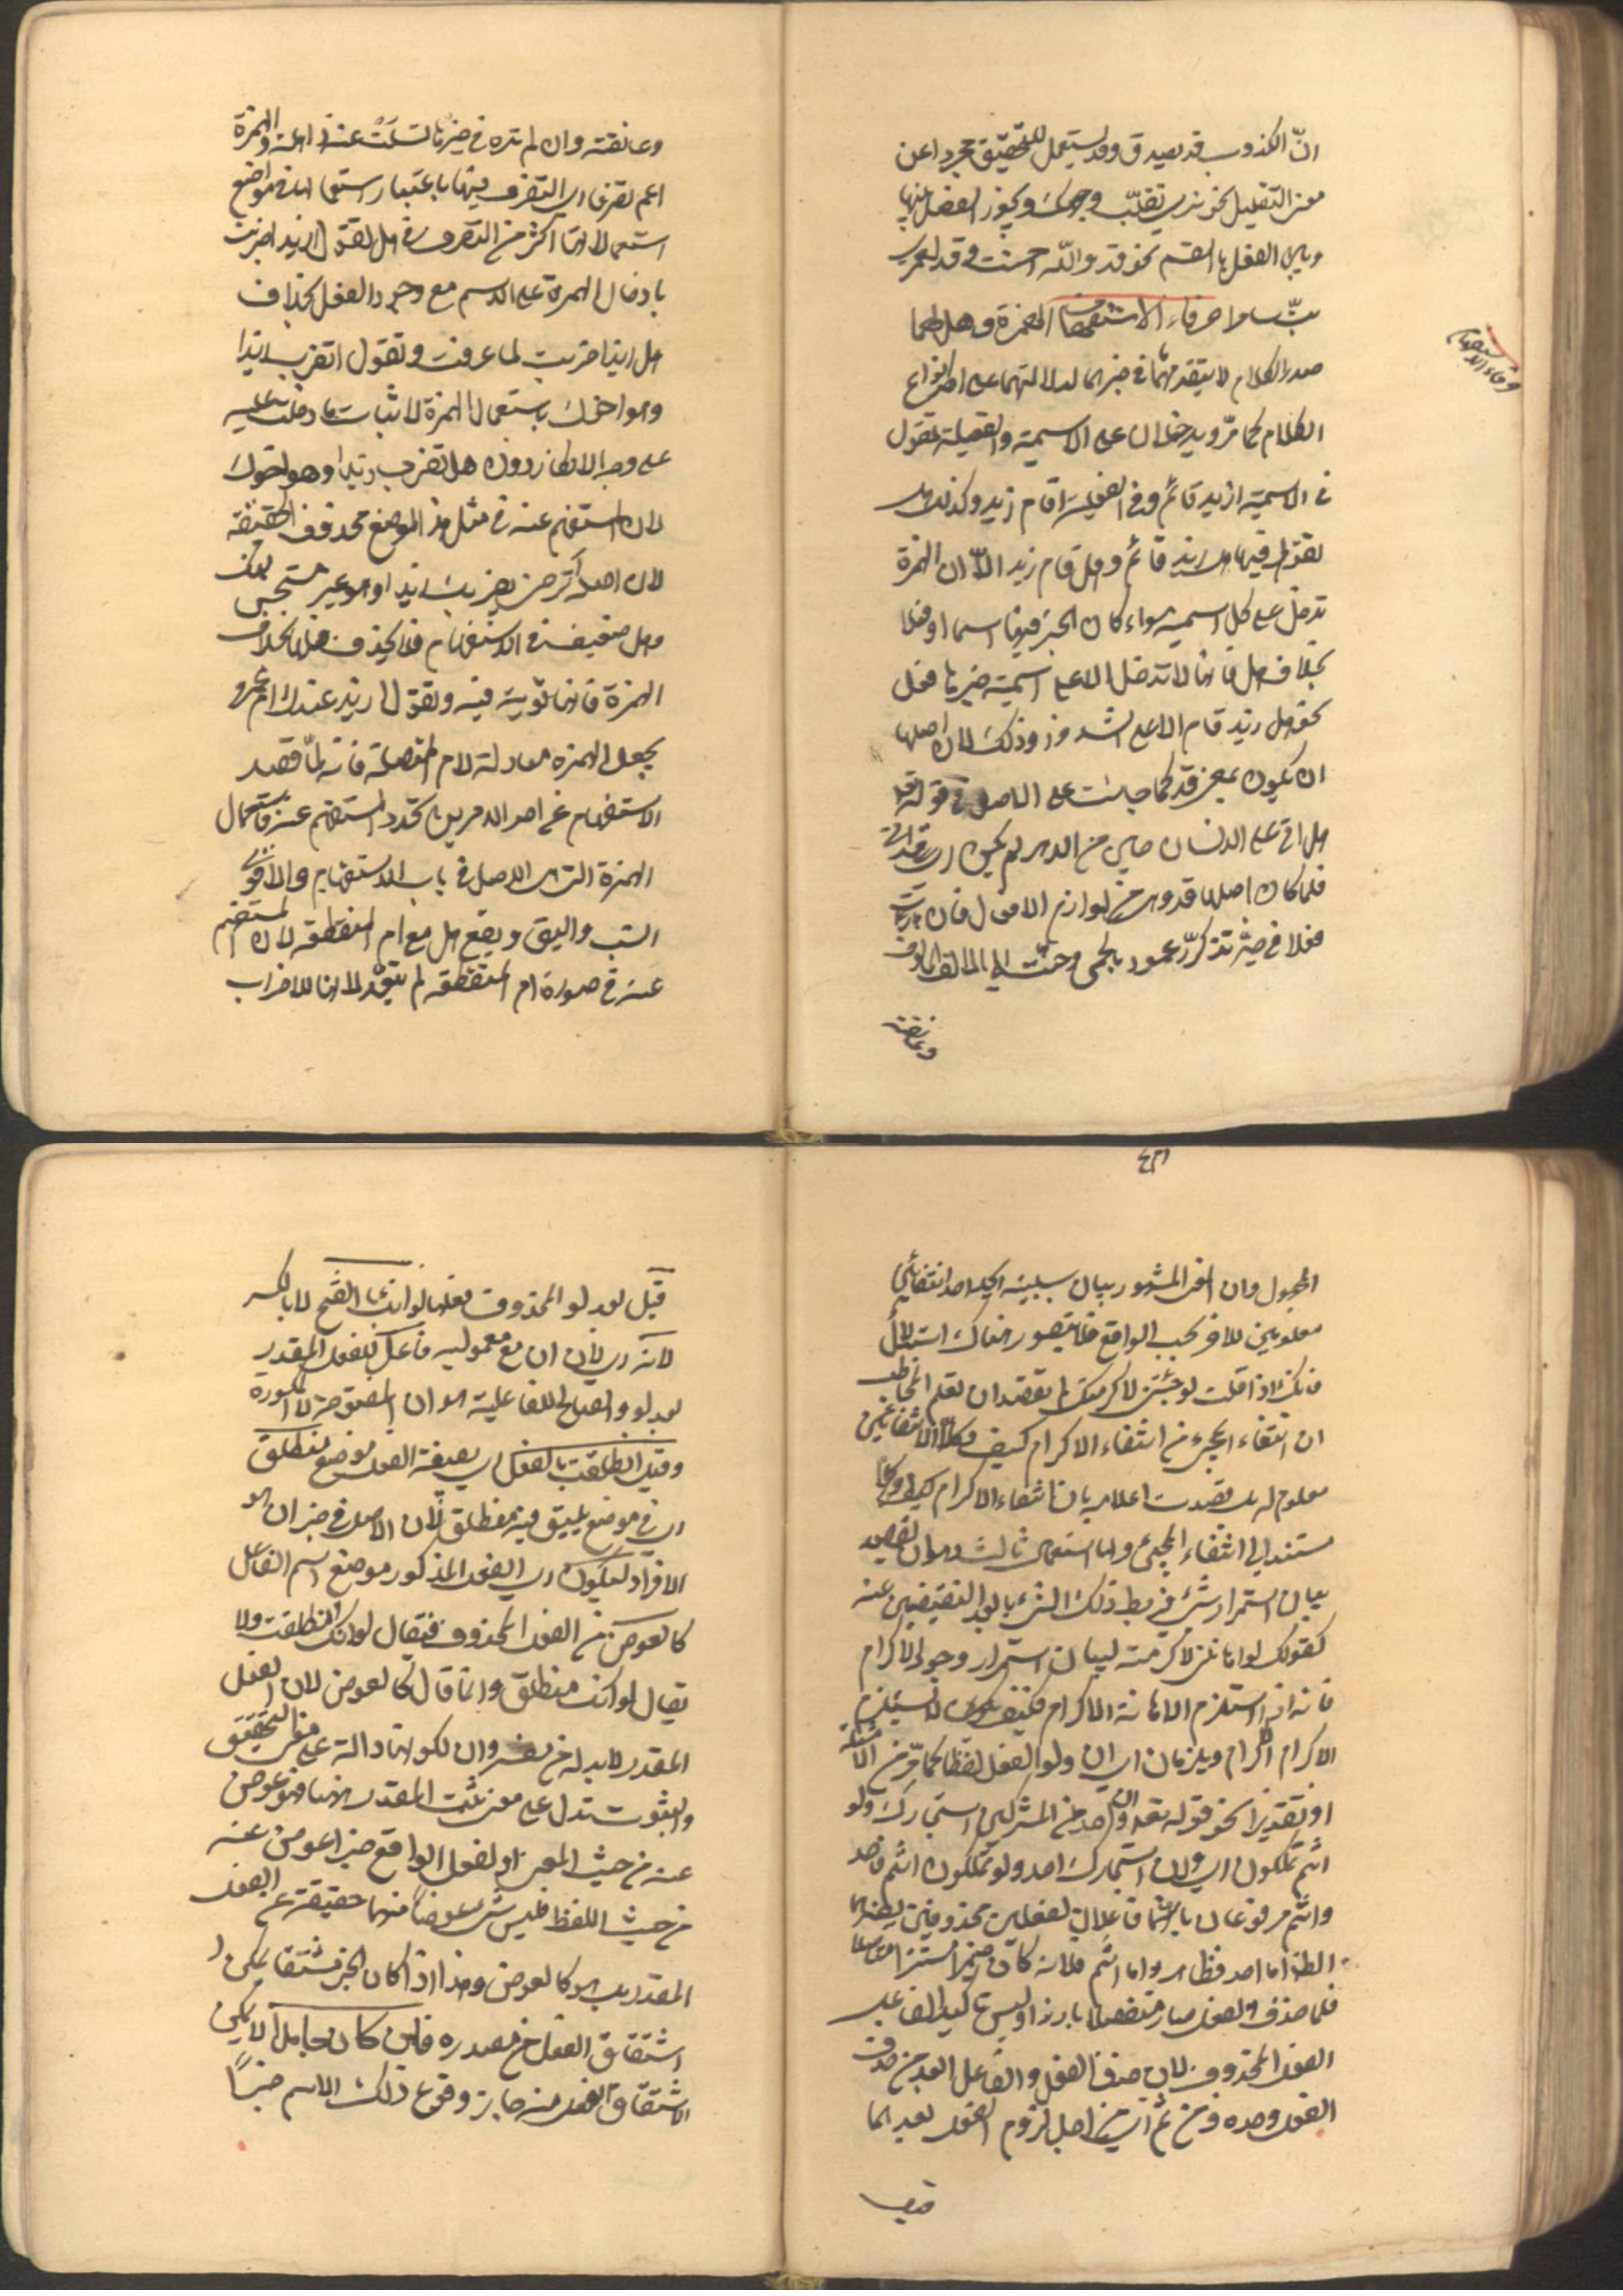 انّ الكذوب قد يصدق وقد يستعمل للتحقيق مجردا عن
معنى التقليل نحو قد نرى تقلّب وجهك ويجوز الفصل بينها
وبين الفعل بالقسم نحو قد والله احسنت وقد لعمرى
بتّ ساهرا حرفا الاستفهام الهمزة وهل لهما
صدر الكلام لا يتقدمهما ما فى خبرهما لدلالتهما على احد انواع
الكلام كما مرّ ويدخلان على الاسمية والفعلية تقول
فى الاسمية ازيد قائم وفى الفعلية اقام زيد وكذلك هل
تقول فيهما هل زيد قائم وهل قام زيد الّا ان الهمزة
تدخل على كل اسمية سواء كان الخبر فيها اسما او فعلا
بخلاف هل فانها لا تدخل الا على اسمية خبرها فعل
نحو هل زيد قام الا على الشذوذ وذلك لان اصلها
ان يكون بمعنى قد كما جاءت على الاصل فى قوله تعا
هل اتى على الانسان حين من الدهر لم يكن اى قد اتى
فلما كان اصلها قد وهى من لوازم الافعال فان رات
فعلا فى حيّزها تذكرت عهودا بالحمى وحنّت الى الالف المالوف
وعانقته
حرفا الاستفهام
وعانقته وان لم تره فى حيزها تسلّت عنه ذاهلة والهمزة
اعم تصرفا اى التصرف فيها باعتبار استعمالها فى مواضع
استعمالاتها اكثر من التصرف فى هل تقول ازيدا ضربت
بادخال الهمزة على الاسم مع وجود الفعل بخلاف
هل زيدا ضربت لما عرفت وتقول اتضرب زيدا
وهو اخوك باستعمال الهمزة لاثبات ما دخلت عليه
على وجه الانكار دون هل تضرب زيدا وهو اخوك
لان المستفهم عنه فى مثل هذا الموضع محذوف الحقيقة
لان اصله اترضى بضربك زيدا وهو غير مستحسن منك
وهل ضعيفة فى الاستفهام فلا يحذف فعلها بخلاف
الهمزة فانها قوية فيه وتقول ازيد عندك ام عمرو
بجعل الهمزة معادلة لام المتصلة فانه لمّا قصد
الاستفهام عن احد الامرين تعدد المستفهم عنه فاستعمال
الهمزة التى هى الاصل فى باب الاستفهام والاقوى
انسب واليق ويقع هل مع ام المنقطعة لان المستفهم
عنه فى صورة ام المنقطعة لم يتعدد لانها للاضراب
المجهول وان المعنى المشهور بيان سببية احد انتفائين
معلومين للاخر بحسب الواقع فلا يتصور هناك استدلال
فانك اذا قلت لو جئتنى لاكرمتك لم تقصد ان تعلم المخاطب
ان انتفاء المجئ من انتفاء الاكرام كيف وكلا الانتفائين
معلوم له بل قصدت اعلامه بان انتفاء الاكرام
مستند الى انتفاء المجئ ولها استعمال ثالث وهو ان يقصد
بيان استمرار شئ فيربط ذلك الشئ بابعد النقيضين عنه
كقولك لو اهاننى لاكرمته لبيان استمرار وجود الاكرام
فانه اذا استلزم الاهانة الاكرام فكيف لا يستلزم
الاكرام الاكرام ويلزمان اى ان ولو الفعل لفظا كما مرّ من الامثلة
او تقديرا نحو قوله تعا وان احد من المشركين استجارك ولو
انتم تملكون اى وان استجارك احد ولو تملكون انتم فاحد
وانتم مرفوعان بانهما فاعلان لفعلين محذوفين يفسرهما
الظاهر اما احد فظاهر واما انتم فلانه كان ضميرا مستترا متصلا
فلما حذف الفعل صار منفصلا بارزا وليس تاكيدا لفاعل
الفعل المحذوف لان حذف الفعل والفاعل ابعد من حذف
الفعل وحده ومن ثم اى من اجل لزوم الفعل بعدهما
قيل
قيل بعد لو المحذوف فعلها لو انك بالفتح لا بالكسر
لانه اى لان ان مع معموليه فاعل للفعل المقدر
بعد لو والصالح للفاعلية هو ان المفتوحة لا المكسورة
وقيل انطلقت بالفعل اى بصيغة الفعل موضع منطلق
اى فى موضع يليق فيه منطلق لان الاصل فى خبر ان هو
الافراد ليكون اى الفعل المذكور موضع اسم الفاعل
كالعوض من الفعل المحذوف فيقال لو انك انطلقت ولا
يقال لو انك منطلق وانما قال كالعوض لان الفعل
المقدر لابد له من مفسر وان لكونها دالة على معنى التحقيق
والثبوت تدل على معنى ثبت المقدر ههنا فهو عوض
عنه من حيث المعنى والفعل الواقع خبرا عوض عنه
من حيث اللفظ فليس شئ عوضا منهما حقيقة عن الفعل
المقدر بل هو كالعوض وهذا اذا كان الخبر مشتقا يمكن
اشتقاق الفعل من مصدره فان كان جامدا لا يمكن
اشتقاق الفعل منه جاز وقوع ذلك الاسم خبرًا